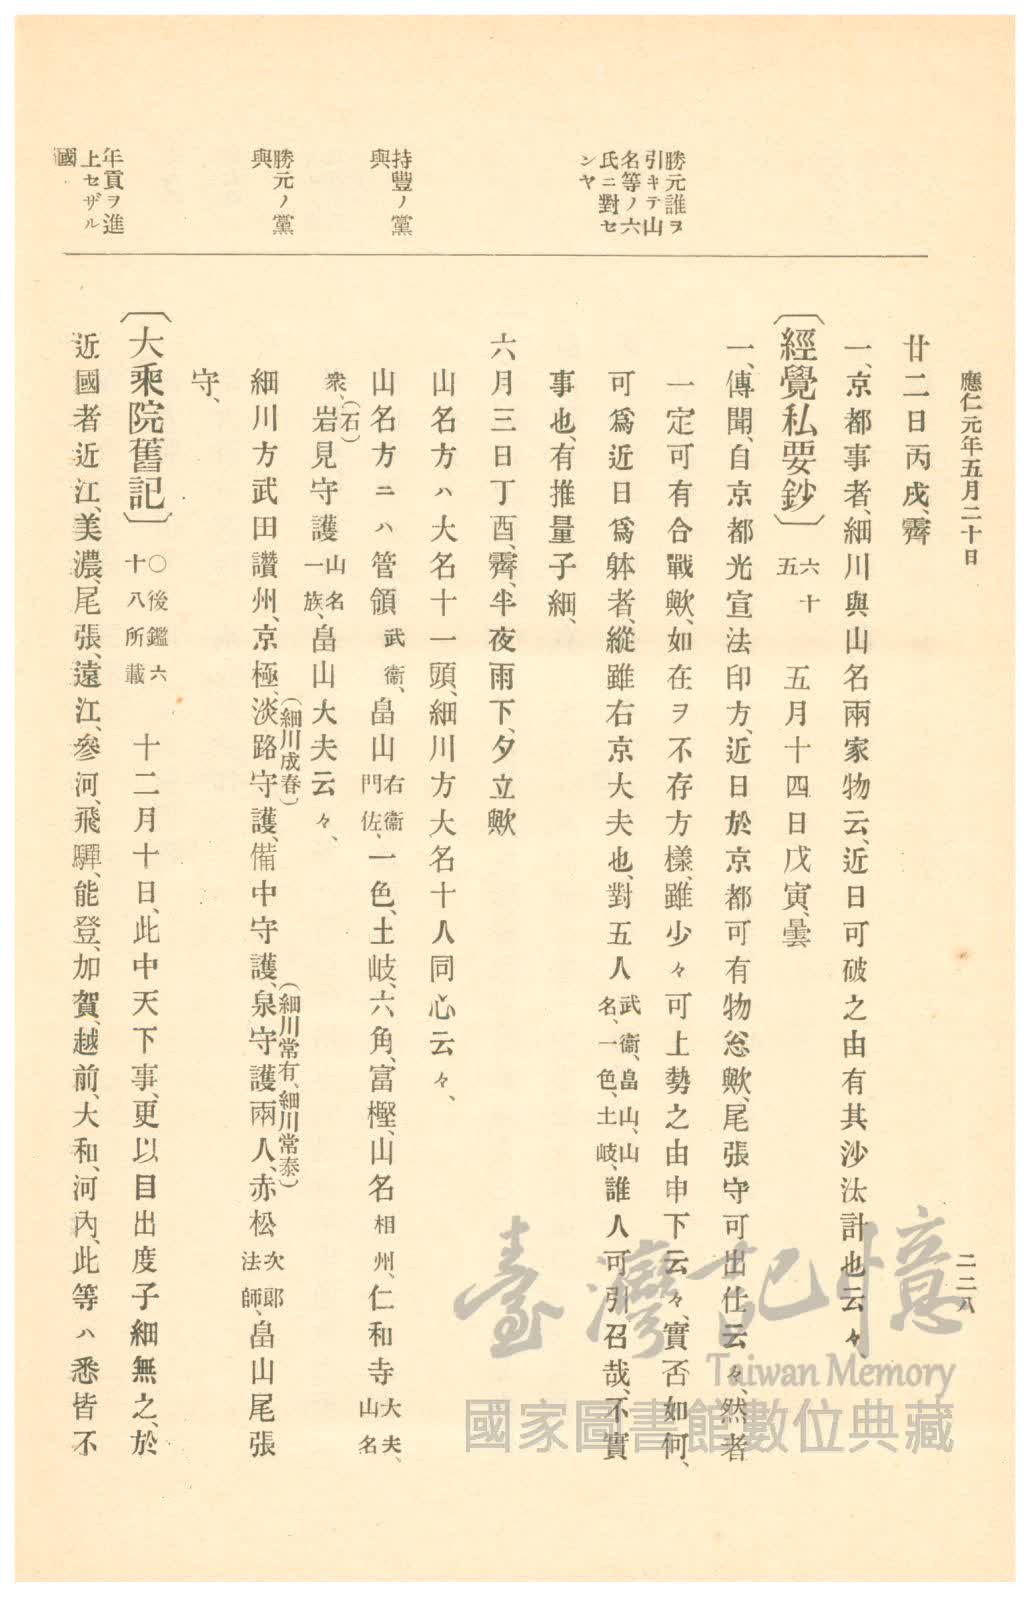 應仁元年五月二十日
二二八
廿二日丙戌、霽
一、京都事者、細川與山名兩家物云、近日可破之由有其沙汰計也云々、
〔經覺私要鈔〕 六十五 五月十四日戊寅、曇
一、傳聞、自京都光宣法印方、近日於京都可有物忩歟、尾張守可出仕云々、然者
一定可有合戰歟、如在ヲ不存方樣、雖少々可上勢之由申下云々、實否如何、
可爲近日爲躰者、縱雖右京大夫也、對五人武衞、畠山、山名、一色、土岐、誰人可引召哉、不實
事也、有推量子細、
六月三日丁酉、霽、半夜雨下、夕立歟
山名方ハ大名十一頭、細川方大名十人同心云々、
山名方ニハ管領武衞、畠山右衞門佐、一色、土岐、六角、富樫、山名相州、仁和寺大夫、山名
衆、岩(石)見守護山名一族、畠山大夫云々、
細川方武田讚州、京極、淡路守護(細川成春)、備中守護、泉守護兩人(細川常有、細川常泰)、赤松次郎法師、畠山尾張
守、
〔大乘院舊記〕 ○後鑑六十八所載 十二月十日、此中天下事、更以目出度子細無之、於
近國者近江、美濃、尾張、遠江、參河、飛驒、能登、加賀、越前、大和、河內、此等ハ悉皆不
勝元誰ヲ
引キテ山
名等ノ六
氏ニ對セ
ンヤ
持豐ノ黨
與
勝元ノ黨
與
年貢ヲ進
上セザル
國
臺灣記憶
Taiwan Memory
國家圖書館數位典藏